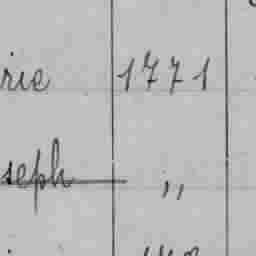 rie 1771
seph „